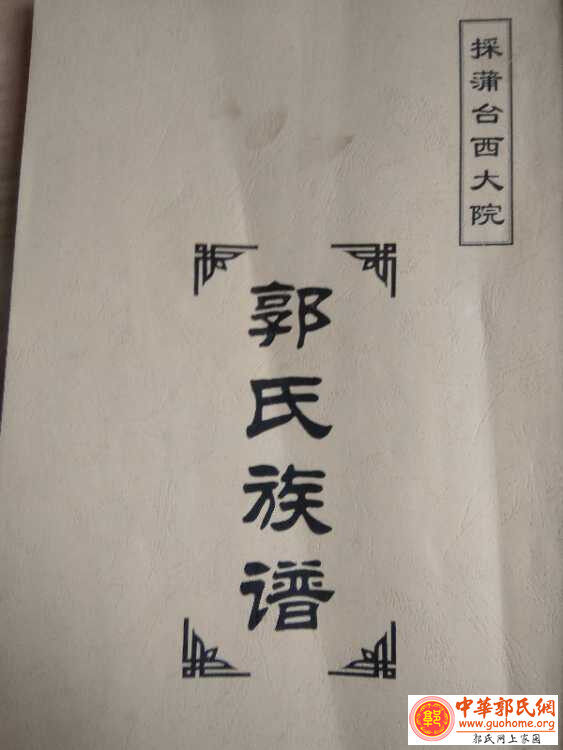 採蒲台西大院
郭氏族谱
中華郭氏網
www.guohome.org
郭氏网上家园